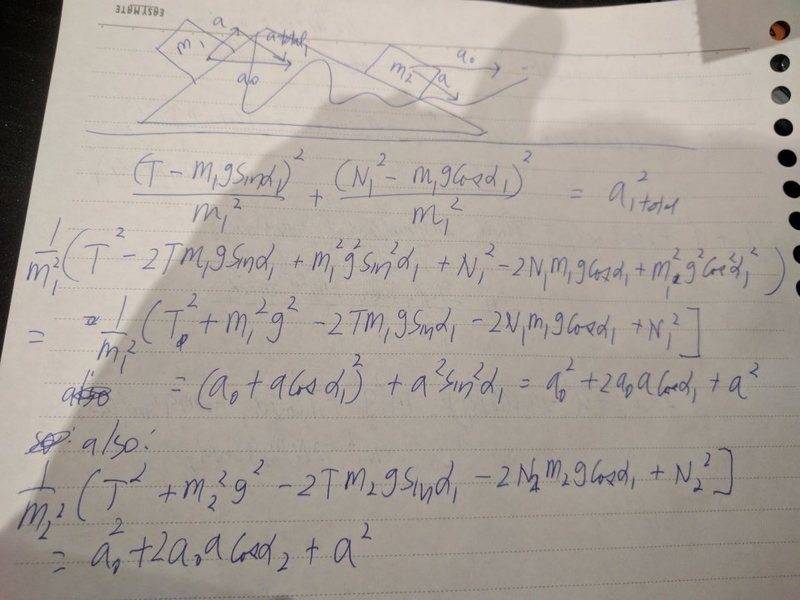 EASYMATE
m₁ a a total₁ a₀ m₂ a₀ a
(T - m₁gsinα₁)²/m₁² + (N₁² - m₁gcosα₁)²/m₁² = a²₁total
1/m₁² (T² - 2Tm₁gsinα₁ + m₁²g²sin²α₁ + N₁² - 2N₁m₁gcosα₁ + m₁²g²cos²α₁²)
= 1/m₁² (T² + m₁²g² - 2Tm₁gsinα₁ - 2N₁m₁gcosα₁ + N₁²]
= (a₀ + acosα₁)² + a²sin²α₁ = a₀² + 2a₀acosα₁ + a²
also:
1/m₂² (T² + m₂²g² - 2Tm₂gsinα₁ - 2N₂m₂gcosα₁ + N₂²]
= a₀² + 2a₀acosα₂ + a²